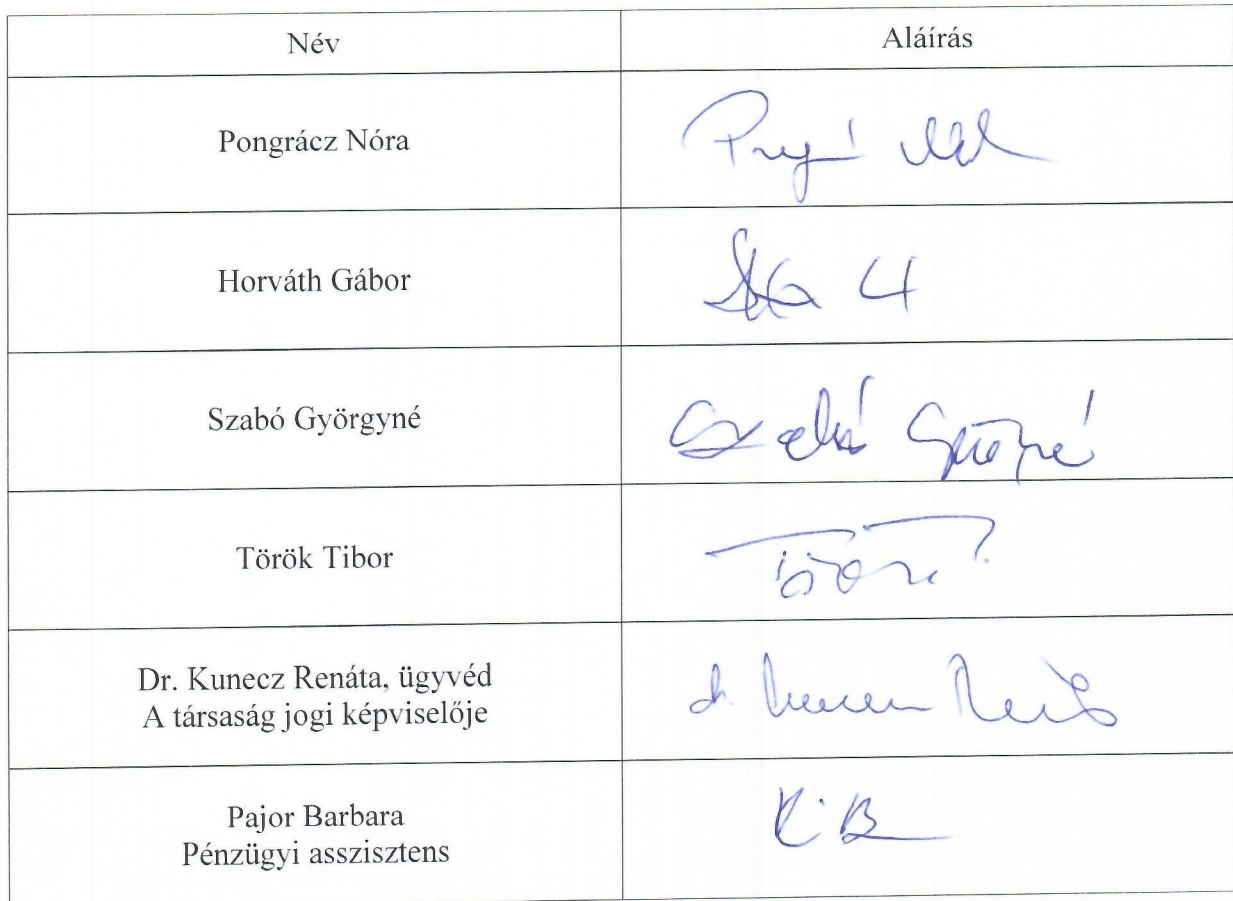 Név Aláírás
Pongrácz Nóra
Horváth Gábor
Szabó Györgyné
Szabó Györgyné
Török Tibor
Török T.
Dr. Kunecz Renáta, ügyvéd
A társaság jogi képviselője
Pajor Barbara
Pénzügyi asszisztens